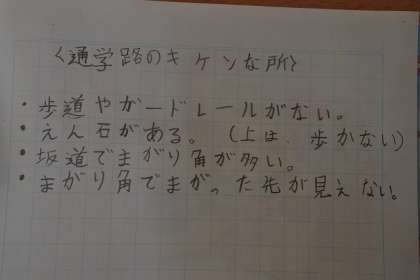 〈通学路のキケンな所〉
・歩道やガードレールがない。
・えん石がある。(上は、歩かない)
・坂道でまがり角が多い。
・まがり角でまがった先が見えない。